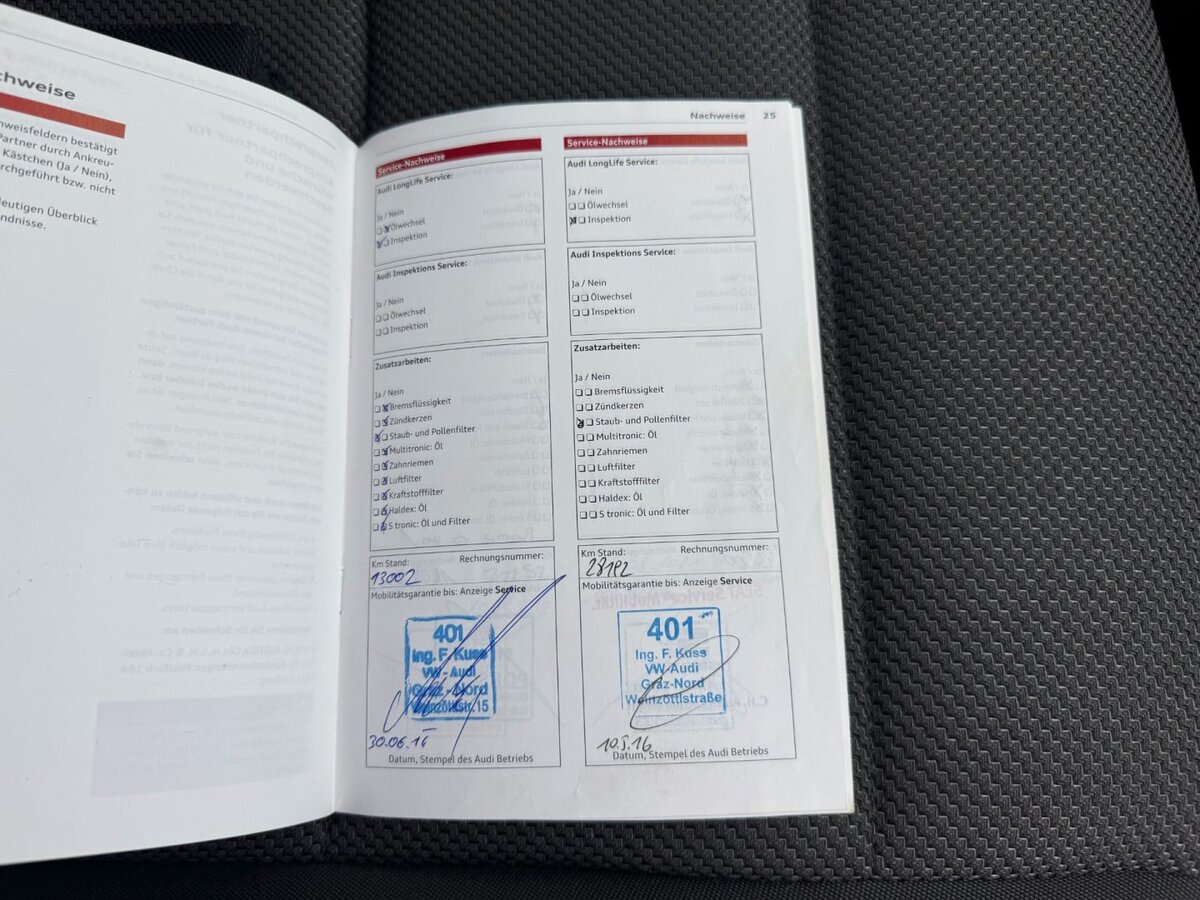 chweise
weisfeldern bestätigt
Partner durch Ankreu-
Kästchen (Ja / Nein),
rchgeführt bzw. nicht
eutigen Überblick
ndnisse.
Nachweise 25
Service-Nachweise
Audi LongLife Service:
Ja / Nein
Ölwechsel
Inspektion
Audi Inspektions Service:
Ja / Nein
Ölwechsel
Inspektion
Zusatzarbeiten:
Ja / Nein
Bremsflüssigkeit
Zündkerzen
Staub- und Pollenfilter
Multitronic: Öl
Zahnriemen
Luftfilter
Kraftstofffilter
Haldex: Öl
S tronic: Öl und Filter
Km Stand: Rechnungsnummer:
13002
Mobilitätsgarantie bis: Anzeige Service
401
Ing. F. Kuss
VW-Audi
Graz-Nord
Weinzöttlstr.15
30.06.
Datum, Stempel des Audi Betriebs
Service-Nachweise
Audi LongLife Service:
Ja / Nein
Ölwechsel
Inspektion
Audi Inspektions Service:
Ja / Nein
Ölwechsel
Inspektion
Zusatzarbeiten:
Ja / Nein
Bremsflüssigkeit
Zündkerzen
Staub- und Pollenfilter
Multitronic: Öl
Zahnriemen
Luftfilter
Kraftstofffilter
Haldex: Öl
S tronic: Öl und Filter
Km Stand: Rechnungsnummer:
28192
Mobilitätsgarantie bis: Anzeige Service
401
Ing. F. Kuss
VW-Audi
Graz-Nord
Weinzöttlstraße
10.5.16
Datum, Stempel des Audi Betriebs